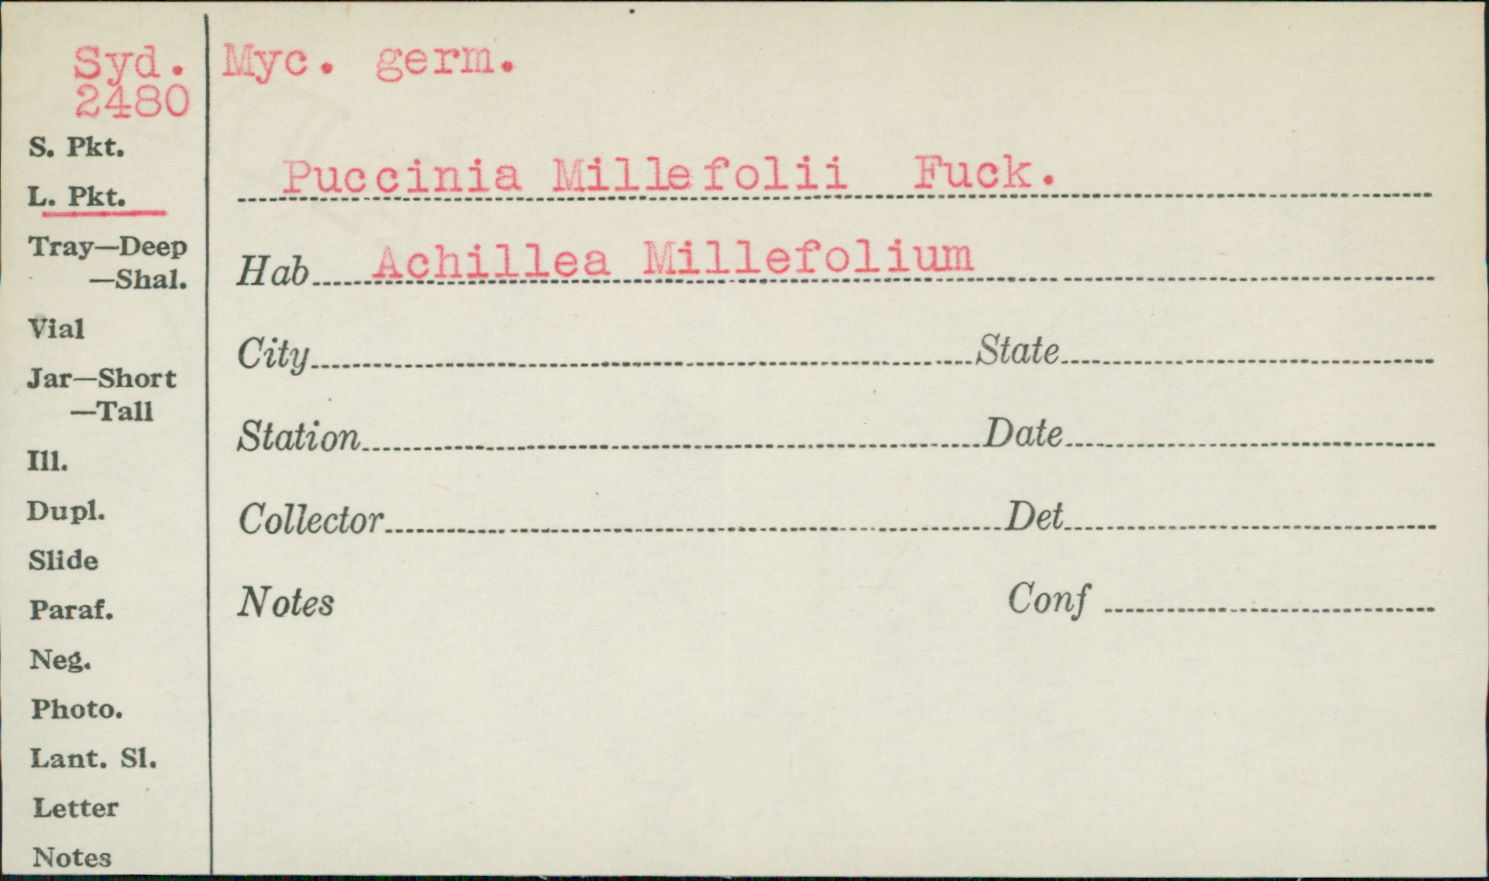 Syd. Myc. germ.
2480
Puccinia Millefolii Fuck.
Hab Achillea Millefolium
City State
Station Date
Collector Det
Notes Conf
S. Pkt.
L. Pkt.
Tray—Deep
—Shal.
Vial
Jar—Short
—Tall
Ill.
Dupl.
Slide
Paraf.
Neg.
Photo.
Lant. Sl.
Letter
Notes